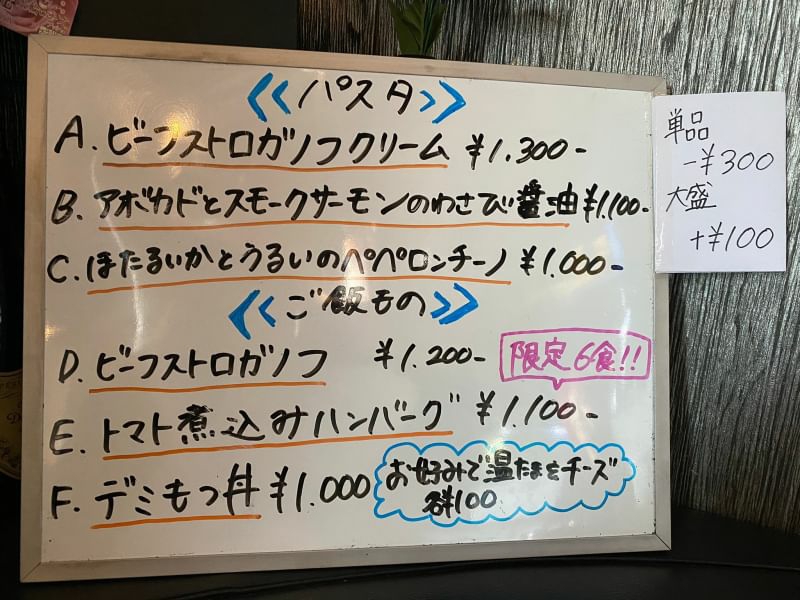 《パスタ》
A.ビーフストロガノフクリーム ¥1.300-
B.アボカドとスモークサーモンのわさび醤油 ¥1.100-
C.ほたるいかとうるいのペペロンチーノ ¥1.000-
《ご飯もの》
D.ビーフストロガノフ ¥1.200- 限定6食!!
E.トマト煮込みハンバーグ ¥1.100-
F.デミもつ丼 ¥1.000
お好みで温たまをチーズ
各¥100
単品
-¥300
大盛
+¥100